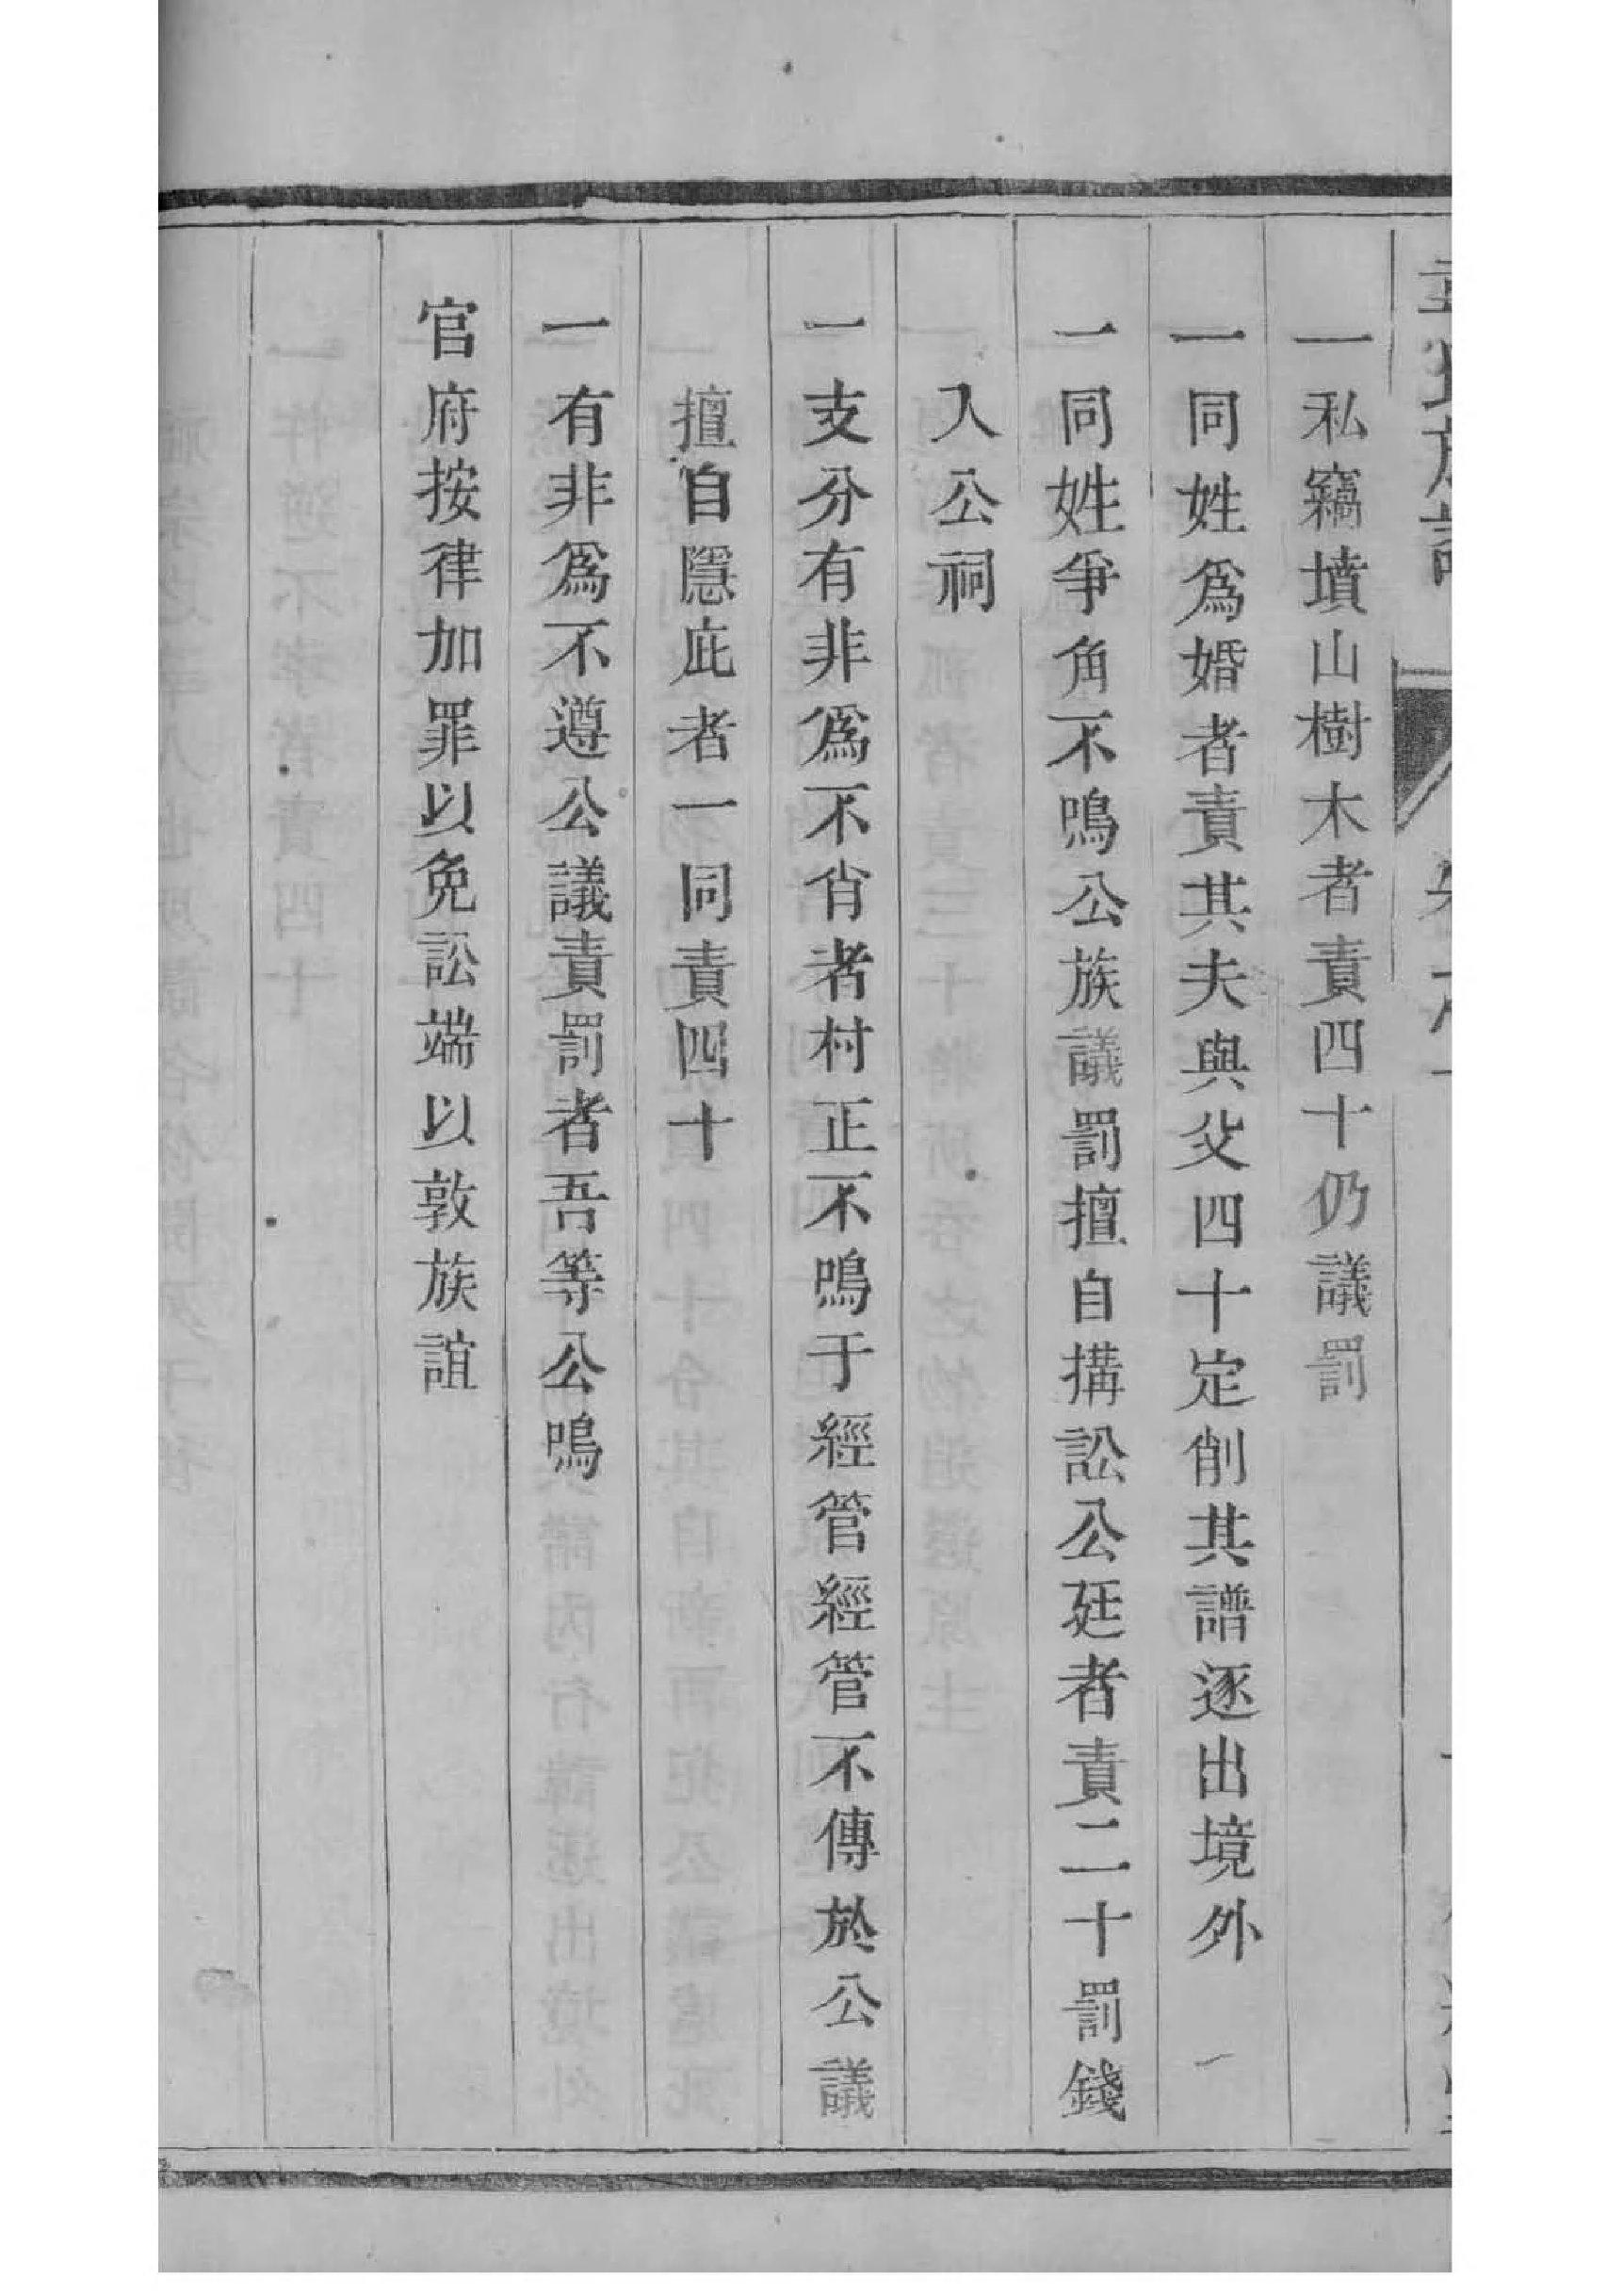 一私竊墳山樹木者責四十仍議罰
一同姓爲婚者責其夫與父四十定削其譜逐出境外
一同姓爭角不鳴公族議罰擅自搆訟公廷者責二十罰錢
入公祠
一支分有非爲不肖者村正不鳴于經管經管不傳於公議
擅自隱庇者一同責四十
一有非爲不遵公議責罰者吾等公鳴
官府按律加罪以免訟端以敦族誼